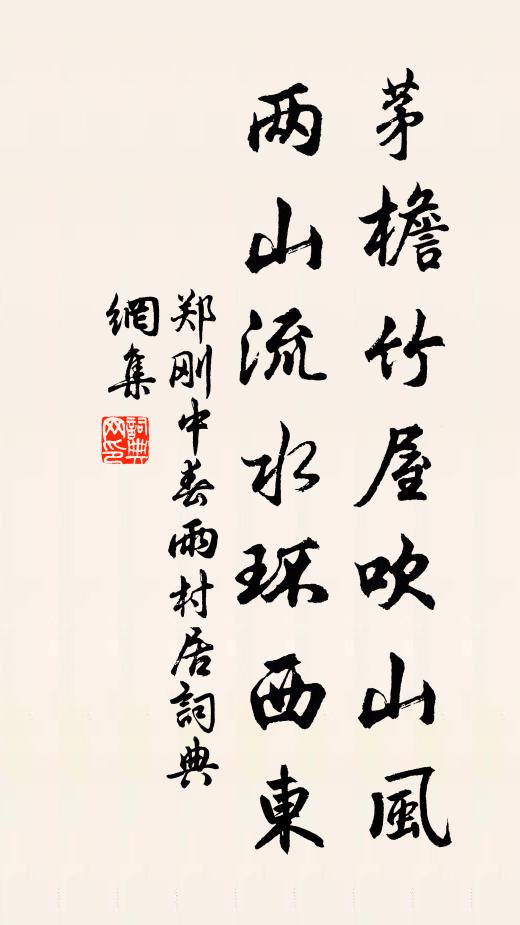 茅檐竹屋吹山風
两山流水环西東
郑刚中春雨村居詞典
網集
詞典网印